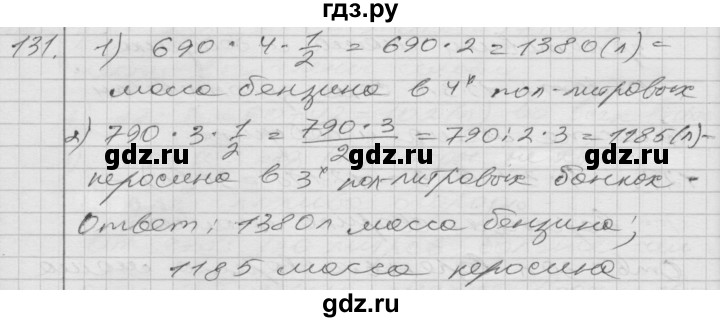 гдз.ру
131. 1) 690 · 4 · 1/2 = 690 · 2 = 1380 (л) –
масса бензина в 4х пол-литровых
2) 790 · 3 · 1/2 = 790 · 3 / 2 = 790 : 2 · 3 = 1185 (л) –
керосина в 3х пол-литровых банках –
Ответ: 1380 л масса бензина;
1185 масса керосина
gdz.ru gdz.ru gdz.ru